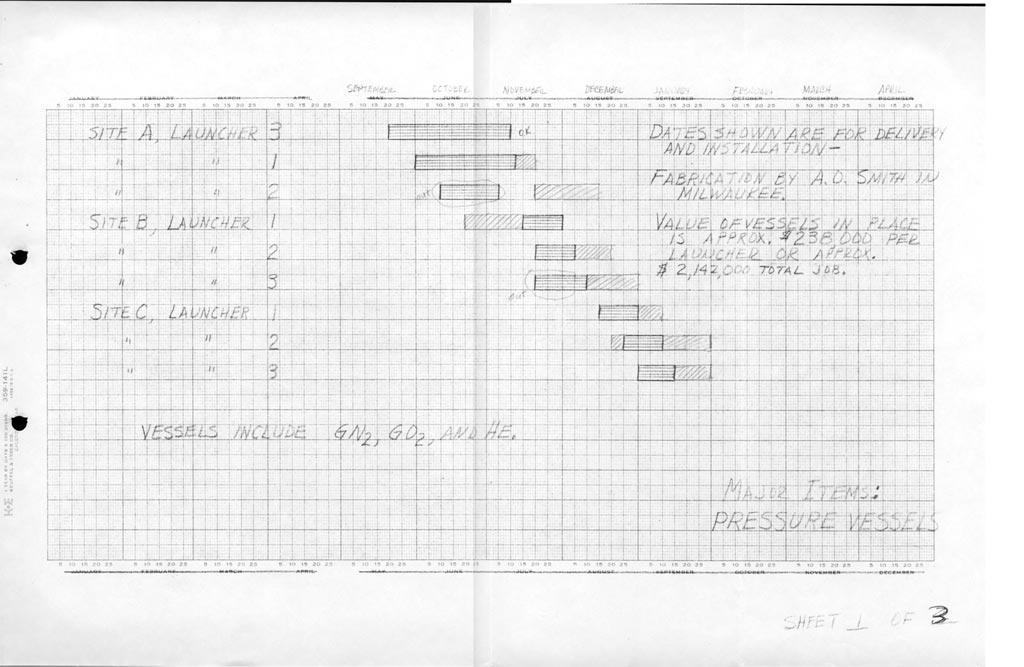 SEPTEMBER OCTOBER NOVEMBER DECEMBER JANUARY FEBRUARY MARCH APRIL
JANUARY FEBRUARY MARCH APRIL MAY JUNE JULY AUGUST SEPTEMBER OCTOBER NOVEMBER DECEMBER
5 10 15 20 25 5 10 15 20 25 5 10 15 20 25 5 10 15 20 25 5 10 15 20 25 5 10 15 20 25 5 10 15 20 25 5 10 15 20 25 5 10 15 20 25 5 10 15 20 25 5 10 15 20 25 5 10 15 20 25
SITE A, LAUNCHER 3 OK
" " 1
" " 2 out
SITE B, LAUNCHER 1
" " 2
" " 3 out
SITE C, LAUNCHER 1
" " 2
" " 3
DATES SHOWN ARE FOR DELIVERY
AND INSTALLATION —
FABRICATION BY A.O. SMITH IN
MILWAUKEE.
VALUE OF VESSELS IN PLACE
IS APPROX. $238,000 PER
LAUNCHER OR APPROX.
$ 2,142,000 TOTAL JOB.
VESSELS INCLUDE GN2, GO2, AND HE.
MAJOR ITEMS:
PRESSURE VESSELS
5 10 15 20 25 5 10 15 20 25 5 10 15 20 25 5 10 15 20 25 5 10 15 20 25 5 10 15 20 25 5 10 15 20 25 5 10 15 20 25 5 10 15 20 25 5 10 15 20 25 5 10 15 20 25 5 10 15 20 25
JANUARY FEBRUARY MARCH APRIL MAY JUNE JULY AUGUST SEPTEMBER OCTOBER NOVEMBER DECEMBER
SHEET 1 OF 3
K+E
359-141L